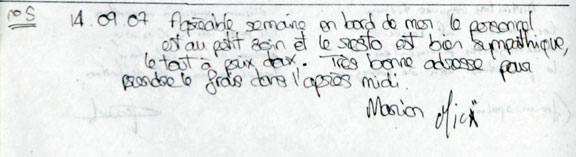 14.09.07 Agréable semaine en bord de mer le personnel
est au petit soin et le resto est bien sympathique,
le tout à prix doux. Très bonne adresse pour
prendre le frais dans l'après midi.
Marion